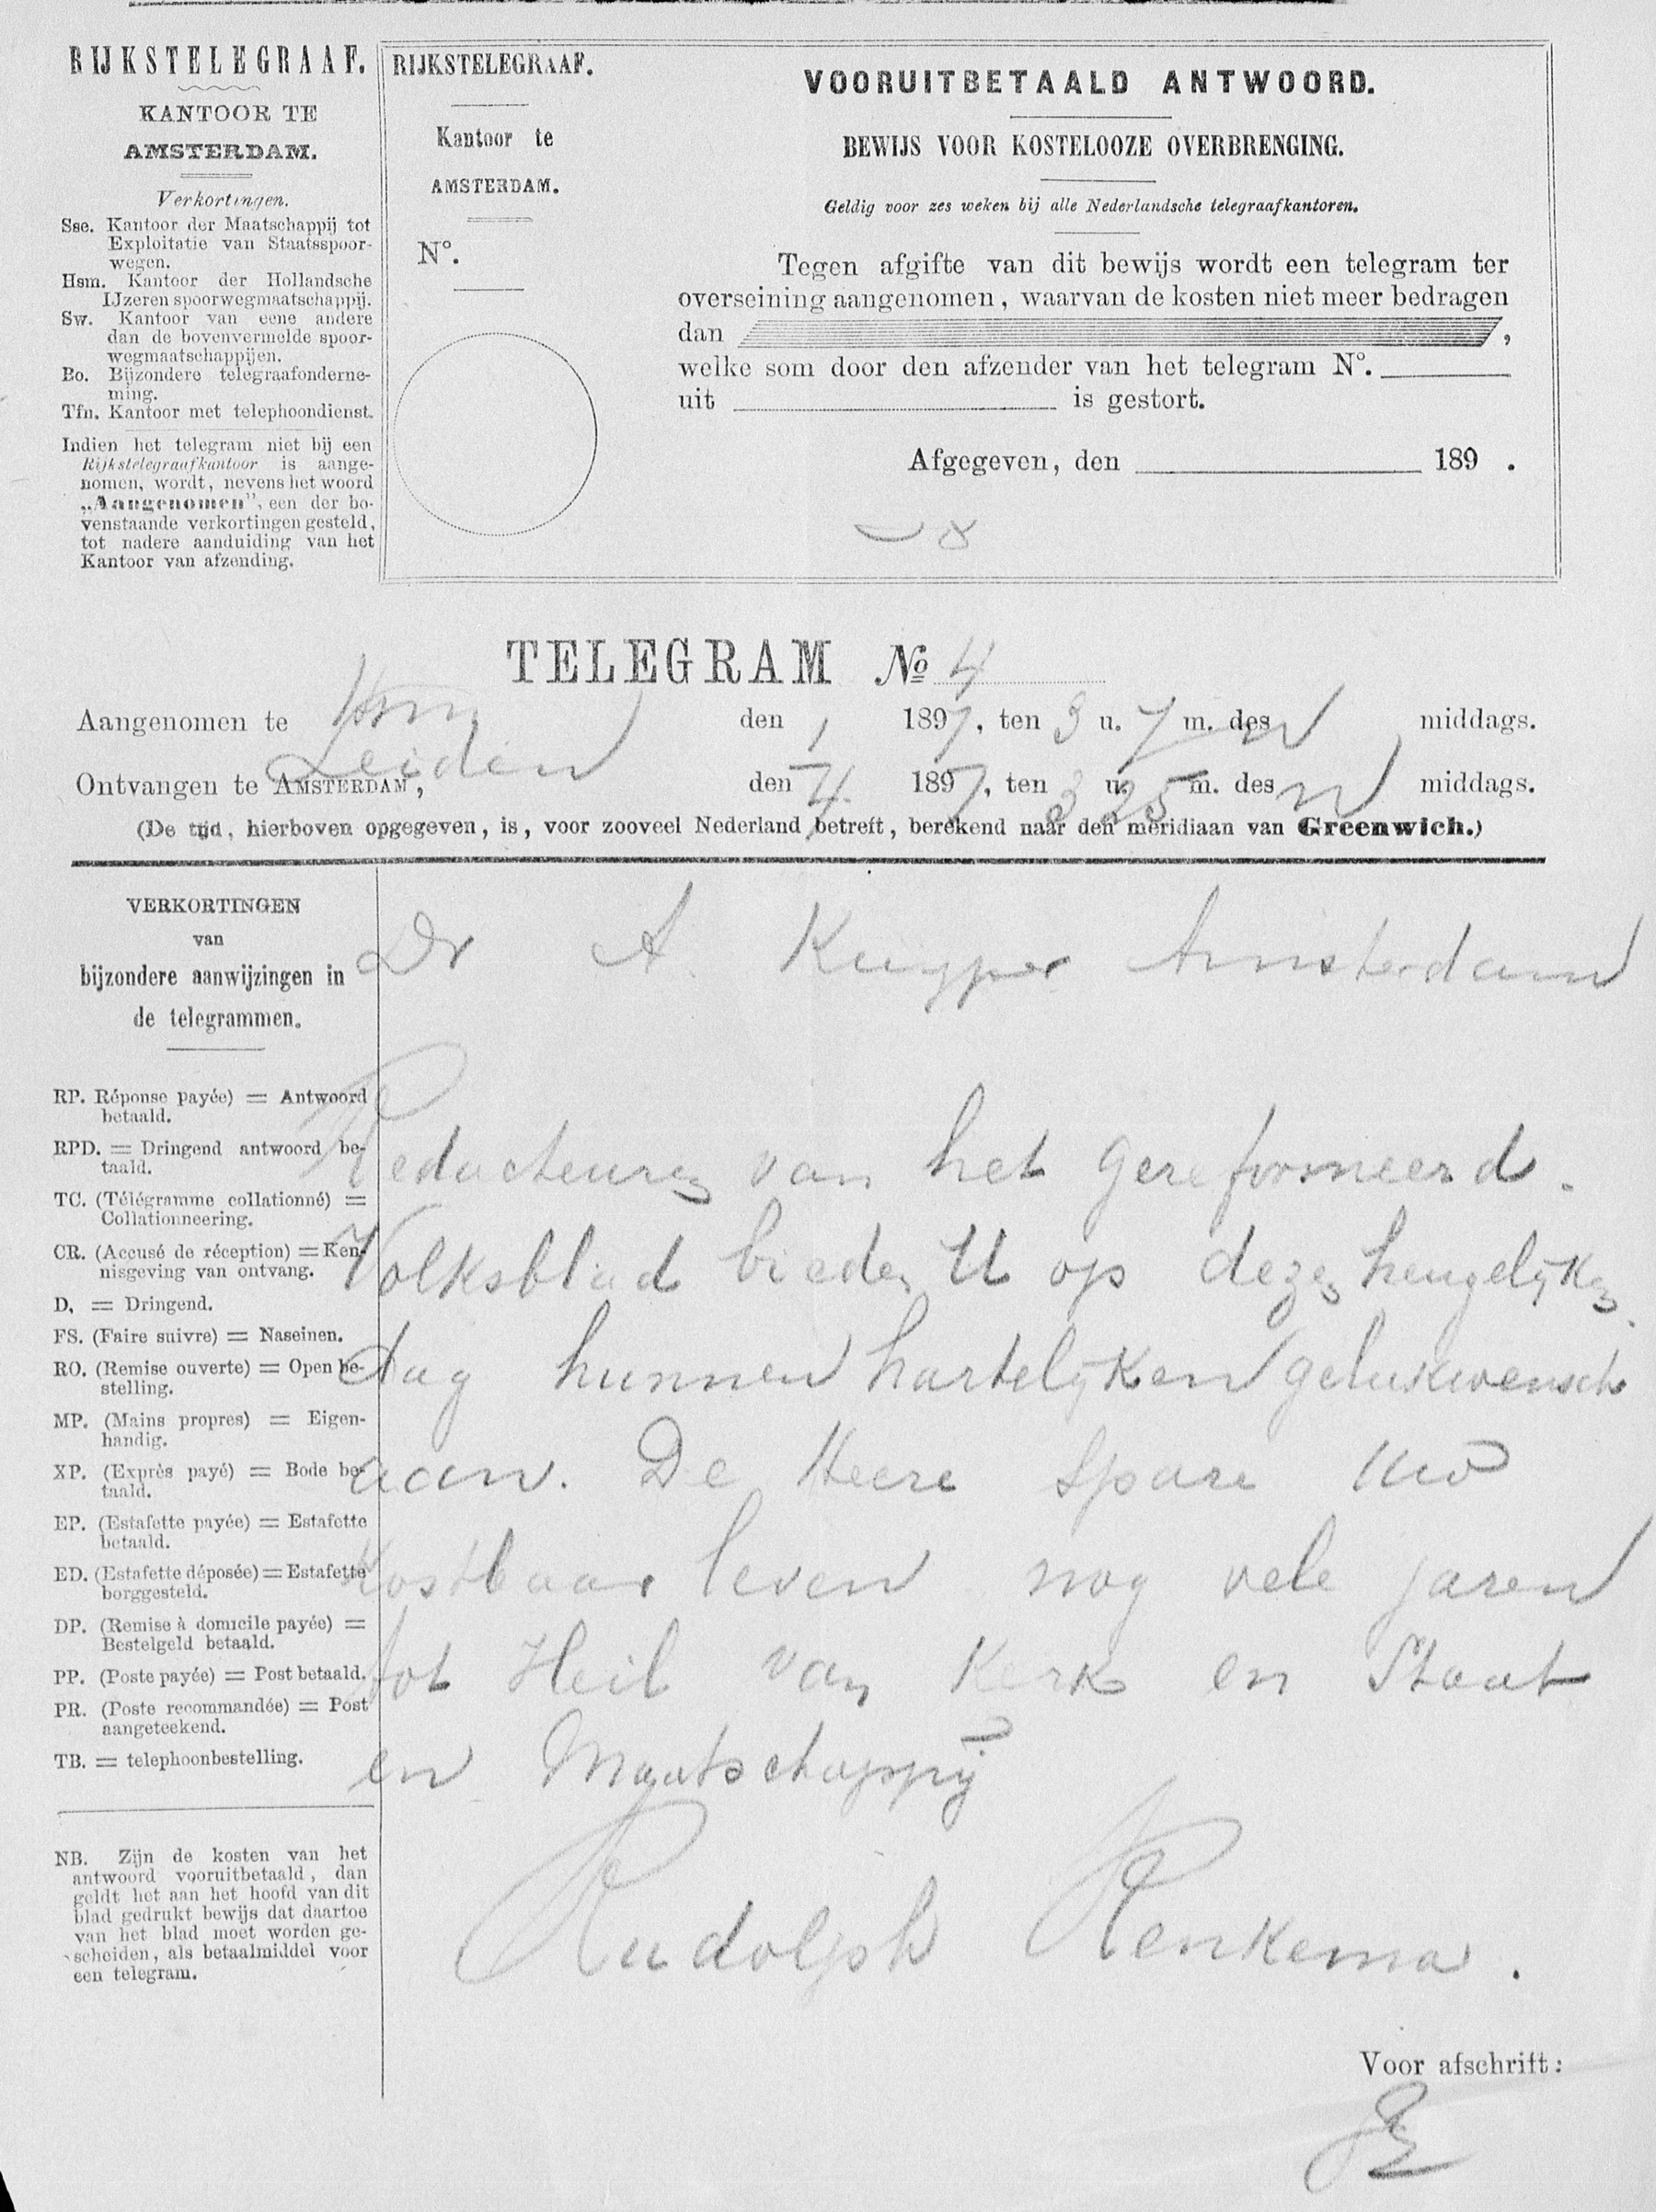 RIJKSTELEGRAAF.
KANTOOR TE
AMSTERDAM.
Verkortingen.
Sse. Kantoor der Maatschappij tot
Exploitatie van Staatsspoor-
wegen.
Hsm. Kantoor der Hollandsche
IJzeren spoorwegmaatschappij.
Sw. Kantoor van eene andere
dan de bovenvermelde spoor-
wegmaatschappijen.
Bo. Bijzondere telegraafonderne-
ming.
Tfn. Kantoor met telephoondienst.
Indien het telegram niet bij een
Rijkstelegraafkantoor is aange-
nomen, wordt, nevens het woord
„Aangenomen", een der bo-
venstaande verkortingen gesteld,
tot nadere aanduiding van het
Kantoor van afzending.
RIJKSTELEGRAAF.
Kantoor te
AMSTERDAM.
No.
VOORUITBETAALD ANTWOORD.
BEWIJS VOOR KOSTELOOZE OVERBRENGING.
Geldig voor zes weken bij alle Nederlandsche telegraafkantoren.
Tegen afgifte van dit bewijs wordt een telegram ter
overseining aangenomen, waarvan de kosten niet meer bedragen
dan ,
welke som door den afzender van het telegram No.
uit is gestort.
Afgegeven, den 189 .
TELEGRAM No 4
Aangenomen te Hsm Leiden den 1 1897, ten 3 u. 7 m. des n middags.
Ontvangen te AMSTERDAM, den 4 1897, ten 3 u. 25 m. des n middags.
(De tijd, hierboven opgegeven, is, voor zooveel Nederland betreft, berekend naar den meridiaan van Greenwich.)
VERKORTINGEN
van
bijzondere aanwijzingen in
de telegrammen.
RP. Réponse payée) = Antwoord
betaald.
RPD. = Dringend antwoord be-
taald.
TC. (Télégramme collationné) =
Collationneering.
CR. (Accusé de réception) = Ken-
nisgeving van ontvang.
D, = Dringend.
FS. (Faire suivre) = Naseinen.
RO. (Remise ouverte) = Open be-
stelling.
MP. (Mains propres) = Eigen-
handig.
XP. (Exprès payé) = Bode be-
taald.
EP. (Estafette payée) = Estafette
betaald.
ED. (Estafette déposée) = Estafette
borggesteld.
DP. (Remise à domicile payée) =
Bestelgeld betaald.
PP. (Poste payée) = Post betaald.
PR. (Poste recommandée) = Post
aangeteekend.
TB. = telephoonbestelling.
NB. Zijn de kosten van het
antwoord vooruitbetaald, dan
geldt het aan het hoofd van dit
blad gedrukt bewijs dat daartoe
van het blad moet worden ge-
scheiden, als betaalmiddel voor
een telegram.
Dr A Kuyper Amsterdam
Redacteuren van het Gereformeerd.
Volksblad bieden U op dezen heugelijken
dag hunnen hartelijken gelukwensch
aan. De Heere spare uw
kostbaar leven nog vele jaren
tot Heil van Kerk en Staat
en Maatschappij
Rudolph Renkema.
Voor afschrift: